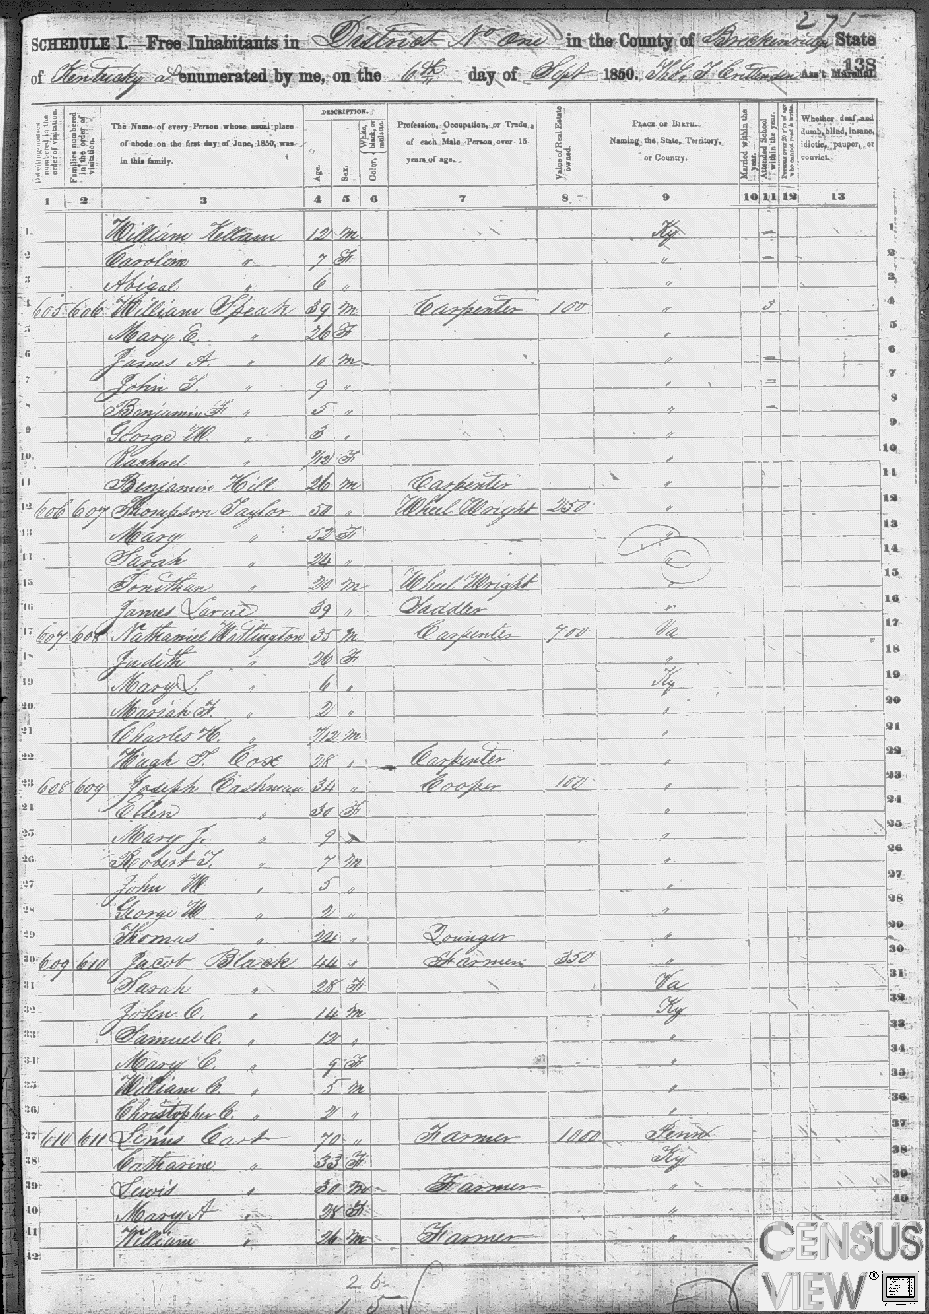 275
SCHEDULE I.—Free Inhabitants in District No One in the County of Breckenridge State
of Kentucky enumerated by me, on the 6th day of Sept 1850. Tho. T. Crittenden Ass't Marshal.
138
Dwelling-houses numbered in the order of visitation.
Families numbered in the order of visitation.
The Name of every Person whose usual place of abode on the first day of June, 1850, was in this family.
DESCRIPTION.
Age.
Sex.
Color, White, black, or mulatto.
Profession, Occupation, or Trade of each Male Person over 15 years of age.
Value of Real Estate owned.
PLACE OF BIRTH. Naming the State, Territory, or Country.
Married within the year.
Attended School within the year.
Persons over 20 y'rs of age who cannot read & write.
Whether deaf and dumb, blind, insane, idiotic, pauper, or convict.
1 2 3 4 5 6 7 8 9 10 11 12 13
1 William Kellam 12 m Ky 1
2 Carolon " 7 F " 2
3 Abigal " 6 " " 3
4 605 606 William Speak 39 m Carpenter 100 " 3 4
5 Mary E. " 26 F " 5
6 James A. " 10 m " 6
7 John T. " 9 " " 7
8 Benjamin F " 5 " " 8
9 George W. " 3 " " 9
10 Rachael " /12 F " 10
11 Benjamin Hill 26 m Carpenter " 11
12 606 607 Thompson Taylor 50 " Wheel Wright 250 " 12
13 Mary " 52 F " 13
14 Sarah " 24 " 14
15 Jonithan " 20 m Wheel Wright 15
16 James Larue 39 " Saddler " 16
17 607 608 Nathaniel Watlington 35 m Carpenter 700 Va 17
18 Judith " 26 F " 18
19 Mary L. " 6 " Ky 19
20 Mariah F. " 2 " " 20
21 Charles H. " 7/12 m " 21
22 Hugh T. Cox 28 " Carpenter " 22
23 608 609 Joseph Cashman 34 " Cooper 100 " 23
24 Ellen " 30 F " 24
25 Mary J. " 9 " " 25
26 Robert T. " 7 m " 26
27 John W " 5 " " 27
28 George W " 2 " " 28
29 Thomas " 24 " " 29
30 609 610 Jacob Black 44 " Farmer 350 " 30
31 Sarah " 28 F Va 31
32 John C. " 14 m Ky 32
33 Samuel C. " 12 " " 33
34 Mary C. " 9 F " 34
35 William C. " 5 m " 35
36 Christopher C. " 2 " " 36
37 610 611 Linus Cart 70 " Farmer 1000 Penn 37
38 Catharine " 33 F Ky 38
39 Lewis " 30 m Farmer " 39
40 Mary A " 28 F " 40
41 William " 26 m Farmer "
42
26
15
CENSUS
VIEW®